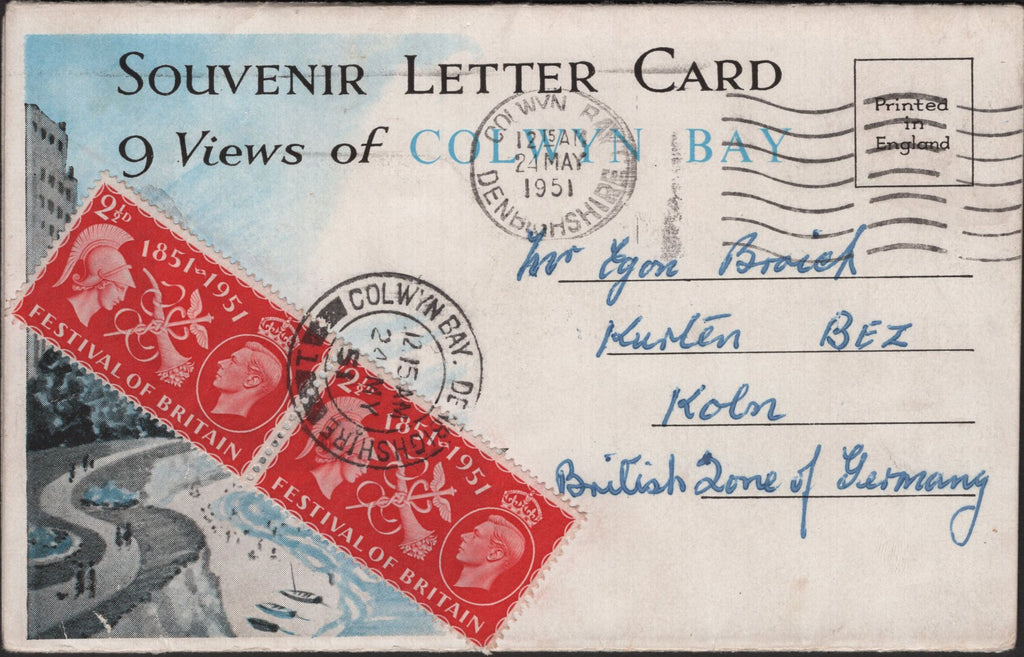 SOUVENIR LETTER CARD
9 Views of COLWYN BAY
Printed
in
England
COLWYN BAY
12 15 AM
24 MAY
1951
DENBIGHSHIRE
2½D
1851–1951
FESTIVAL OF BRITAIN
COLWYN BAY. DENBIGHSHIRE
12 15 AM
24 MY
51
2½
1851–1951
FESTIVAL OF BRITAIN
Egon Broich
Kürten BEZ
Koln
British Zone of Germany